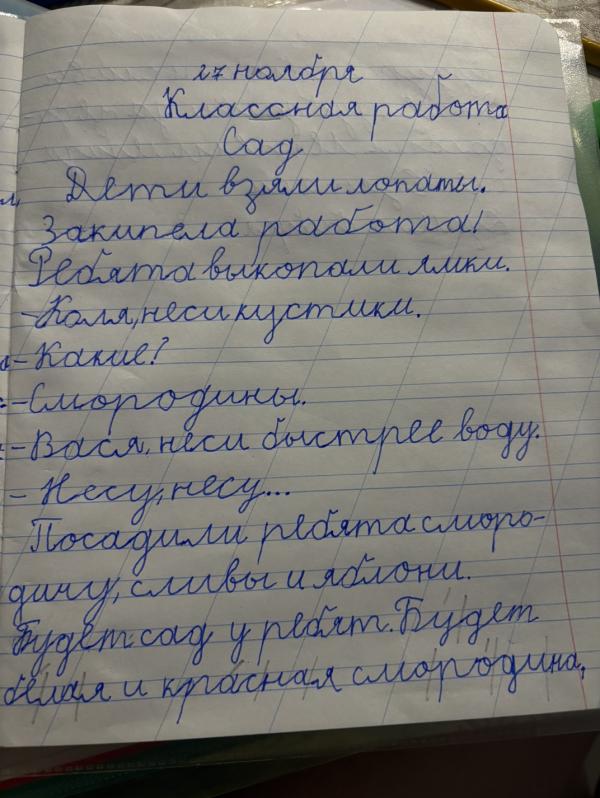 27 ноября
Классная работа
Сад
Дети взяли лопаты.
Закипела работа!
Ребята выкопали ямки.
-Коля, неси кустики.
- Какие?
-Смородины.
- Вася, неси быстрее воду.
- Несу, несу...
Посадили ребята сморо-
дину, сливы и яблони.
Будет сад у ребят. Будет
белая и красная смородина,